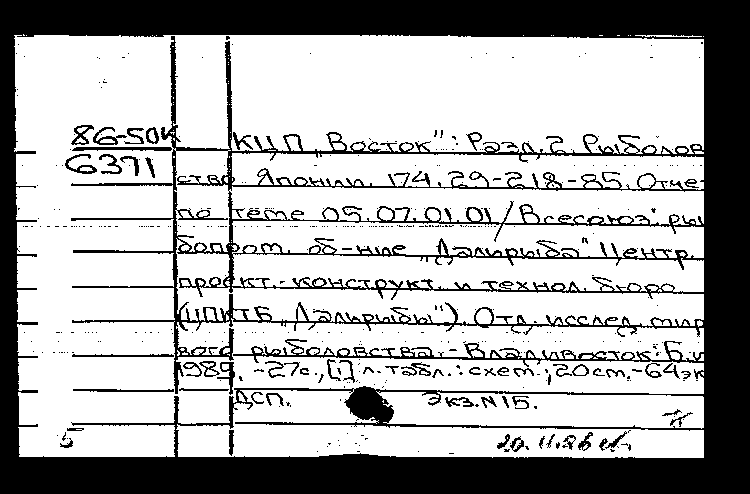 86-50К КЦП „Восток": Разд. 2. Рыболов
6371 ство Японии. 174.29-218-85. Отче
по теме 05.07.01.01/Всесоюз. ры
бопром. об-ние „Дальрыба" Центр.
проект.-конструкт. и технол. бюро
(ЦПКТБ „Дальрыбы"). Отд. исслед. мир
вого рыболовства.- Владивосток: Б.и
1985. -27с., [1] л. табл.: схем.; 20 см.-64 эк
ДСП. Экз. N 15.
5 20.11.86